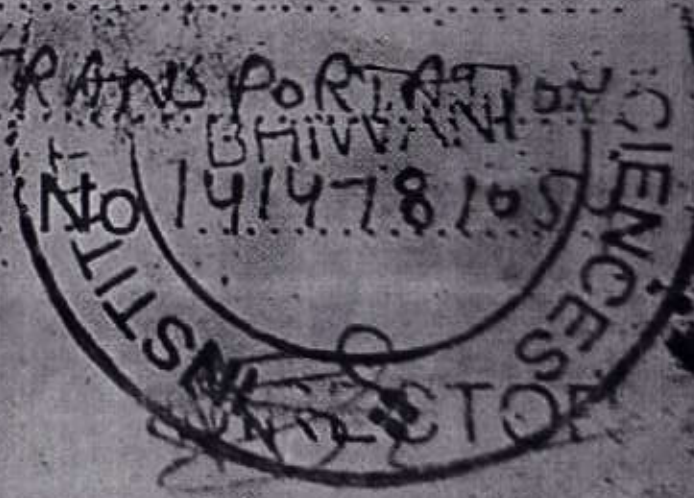 TRANSPORTATION
BHIWANI
No 141478105
INSTIT
SCIENCES